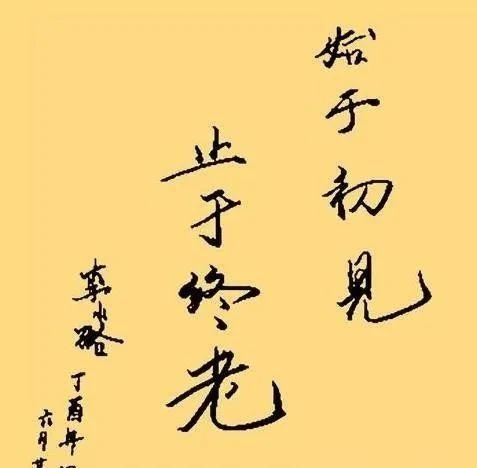 始于初見
止于终老
小路
丁酉年
六月